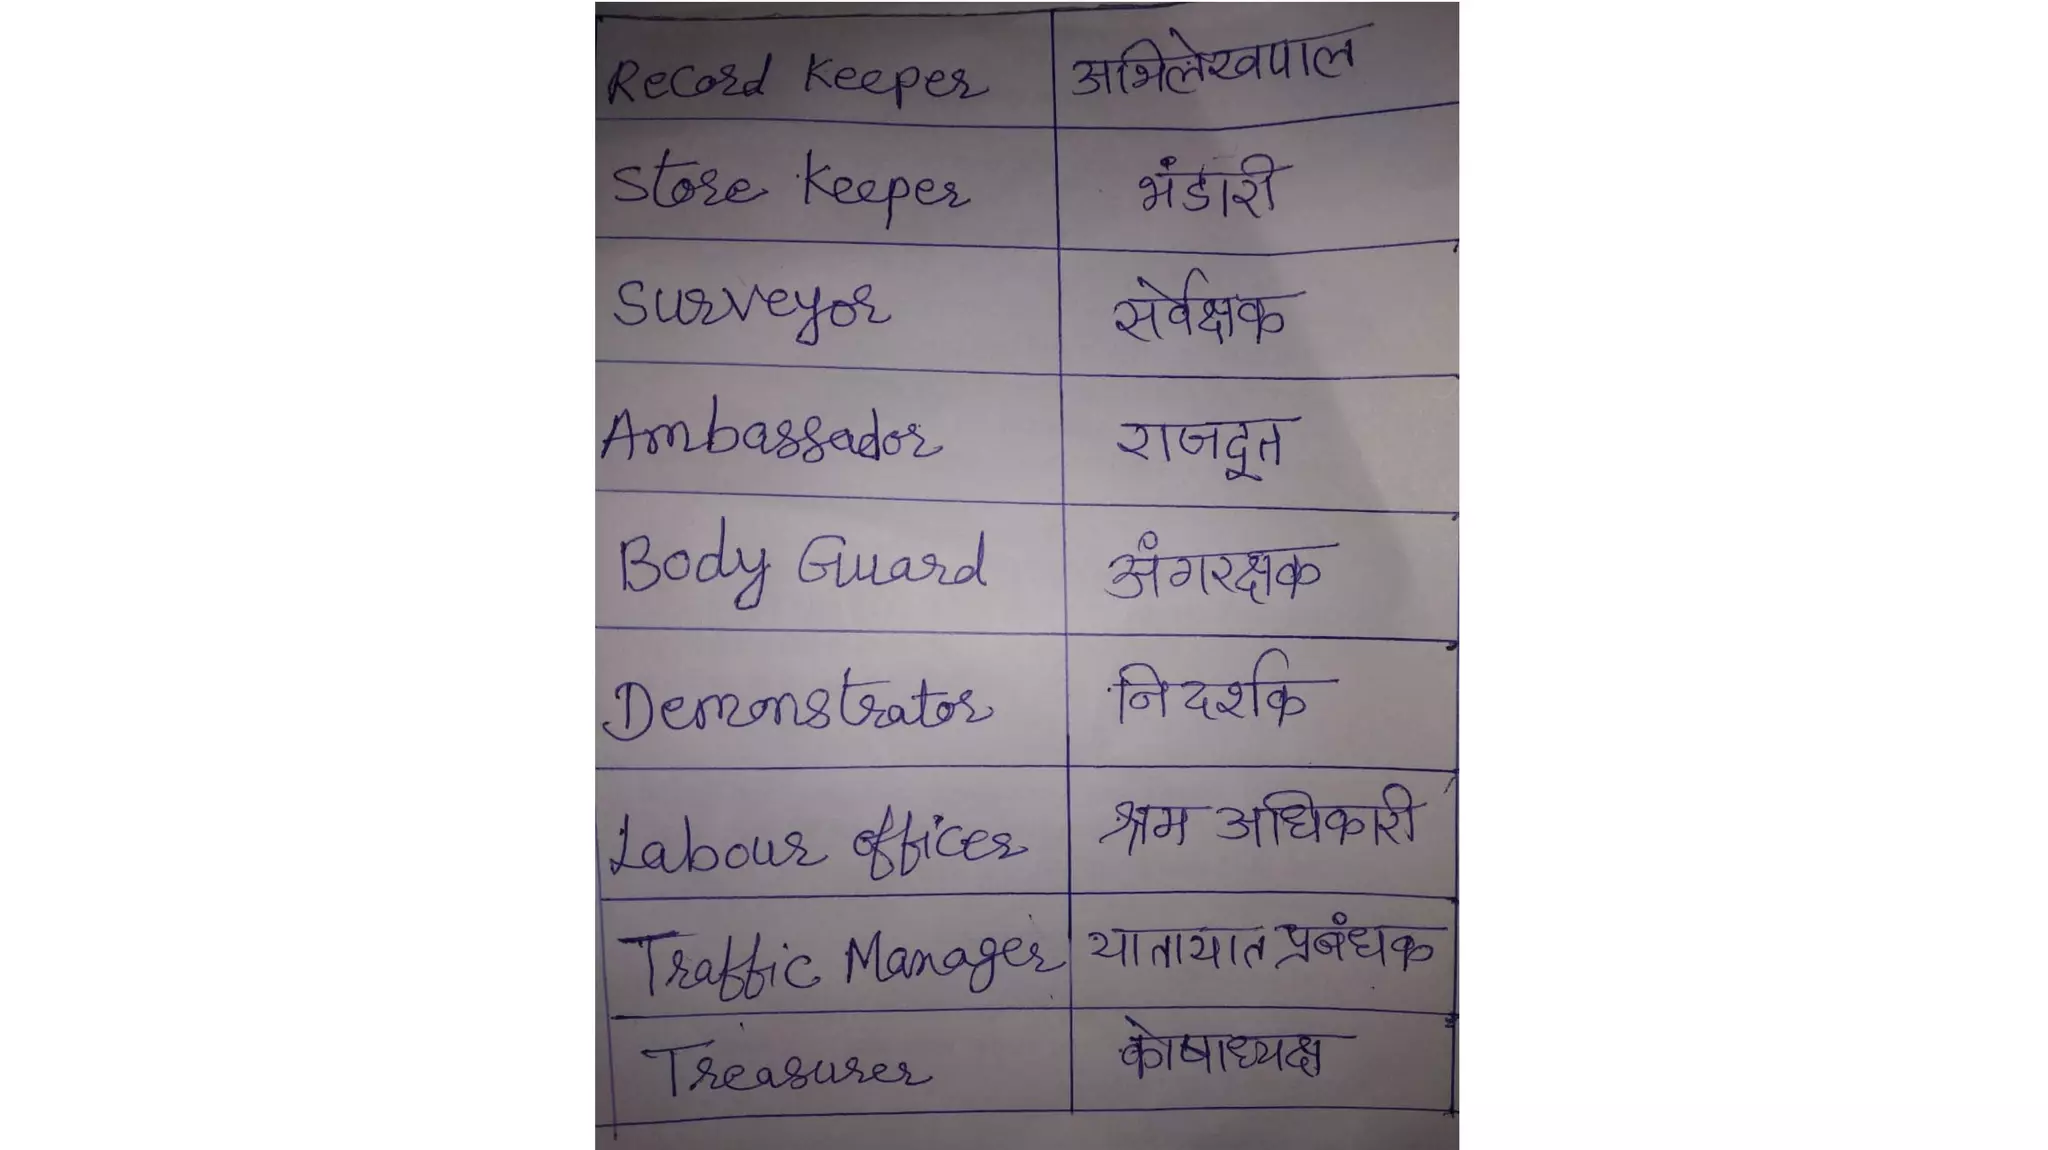 Record Keeper अभिलेखपाल
Store Keeper भंडारी
Surveyor सर्वेक्षक
Ambassador राजदूत
Body Guard अंगरक्षक
Demonstrator निदर्शक
Labour officer श्रम अधिकारी
Traffic Manager यातायात प्रबंधक
Treasurer कोषाध्यक्ष